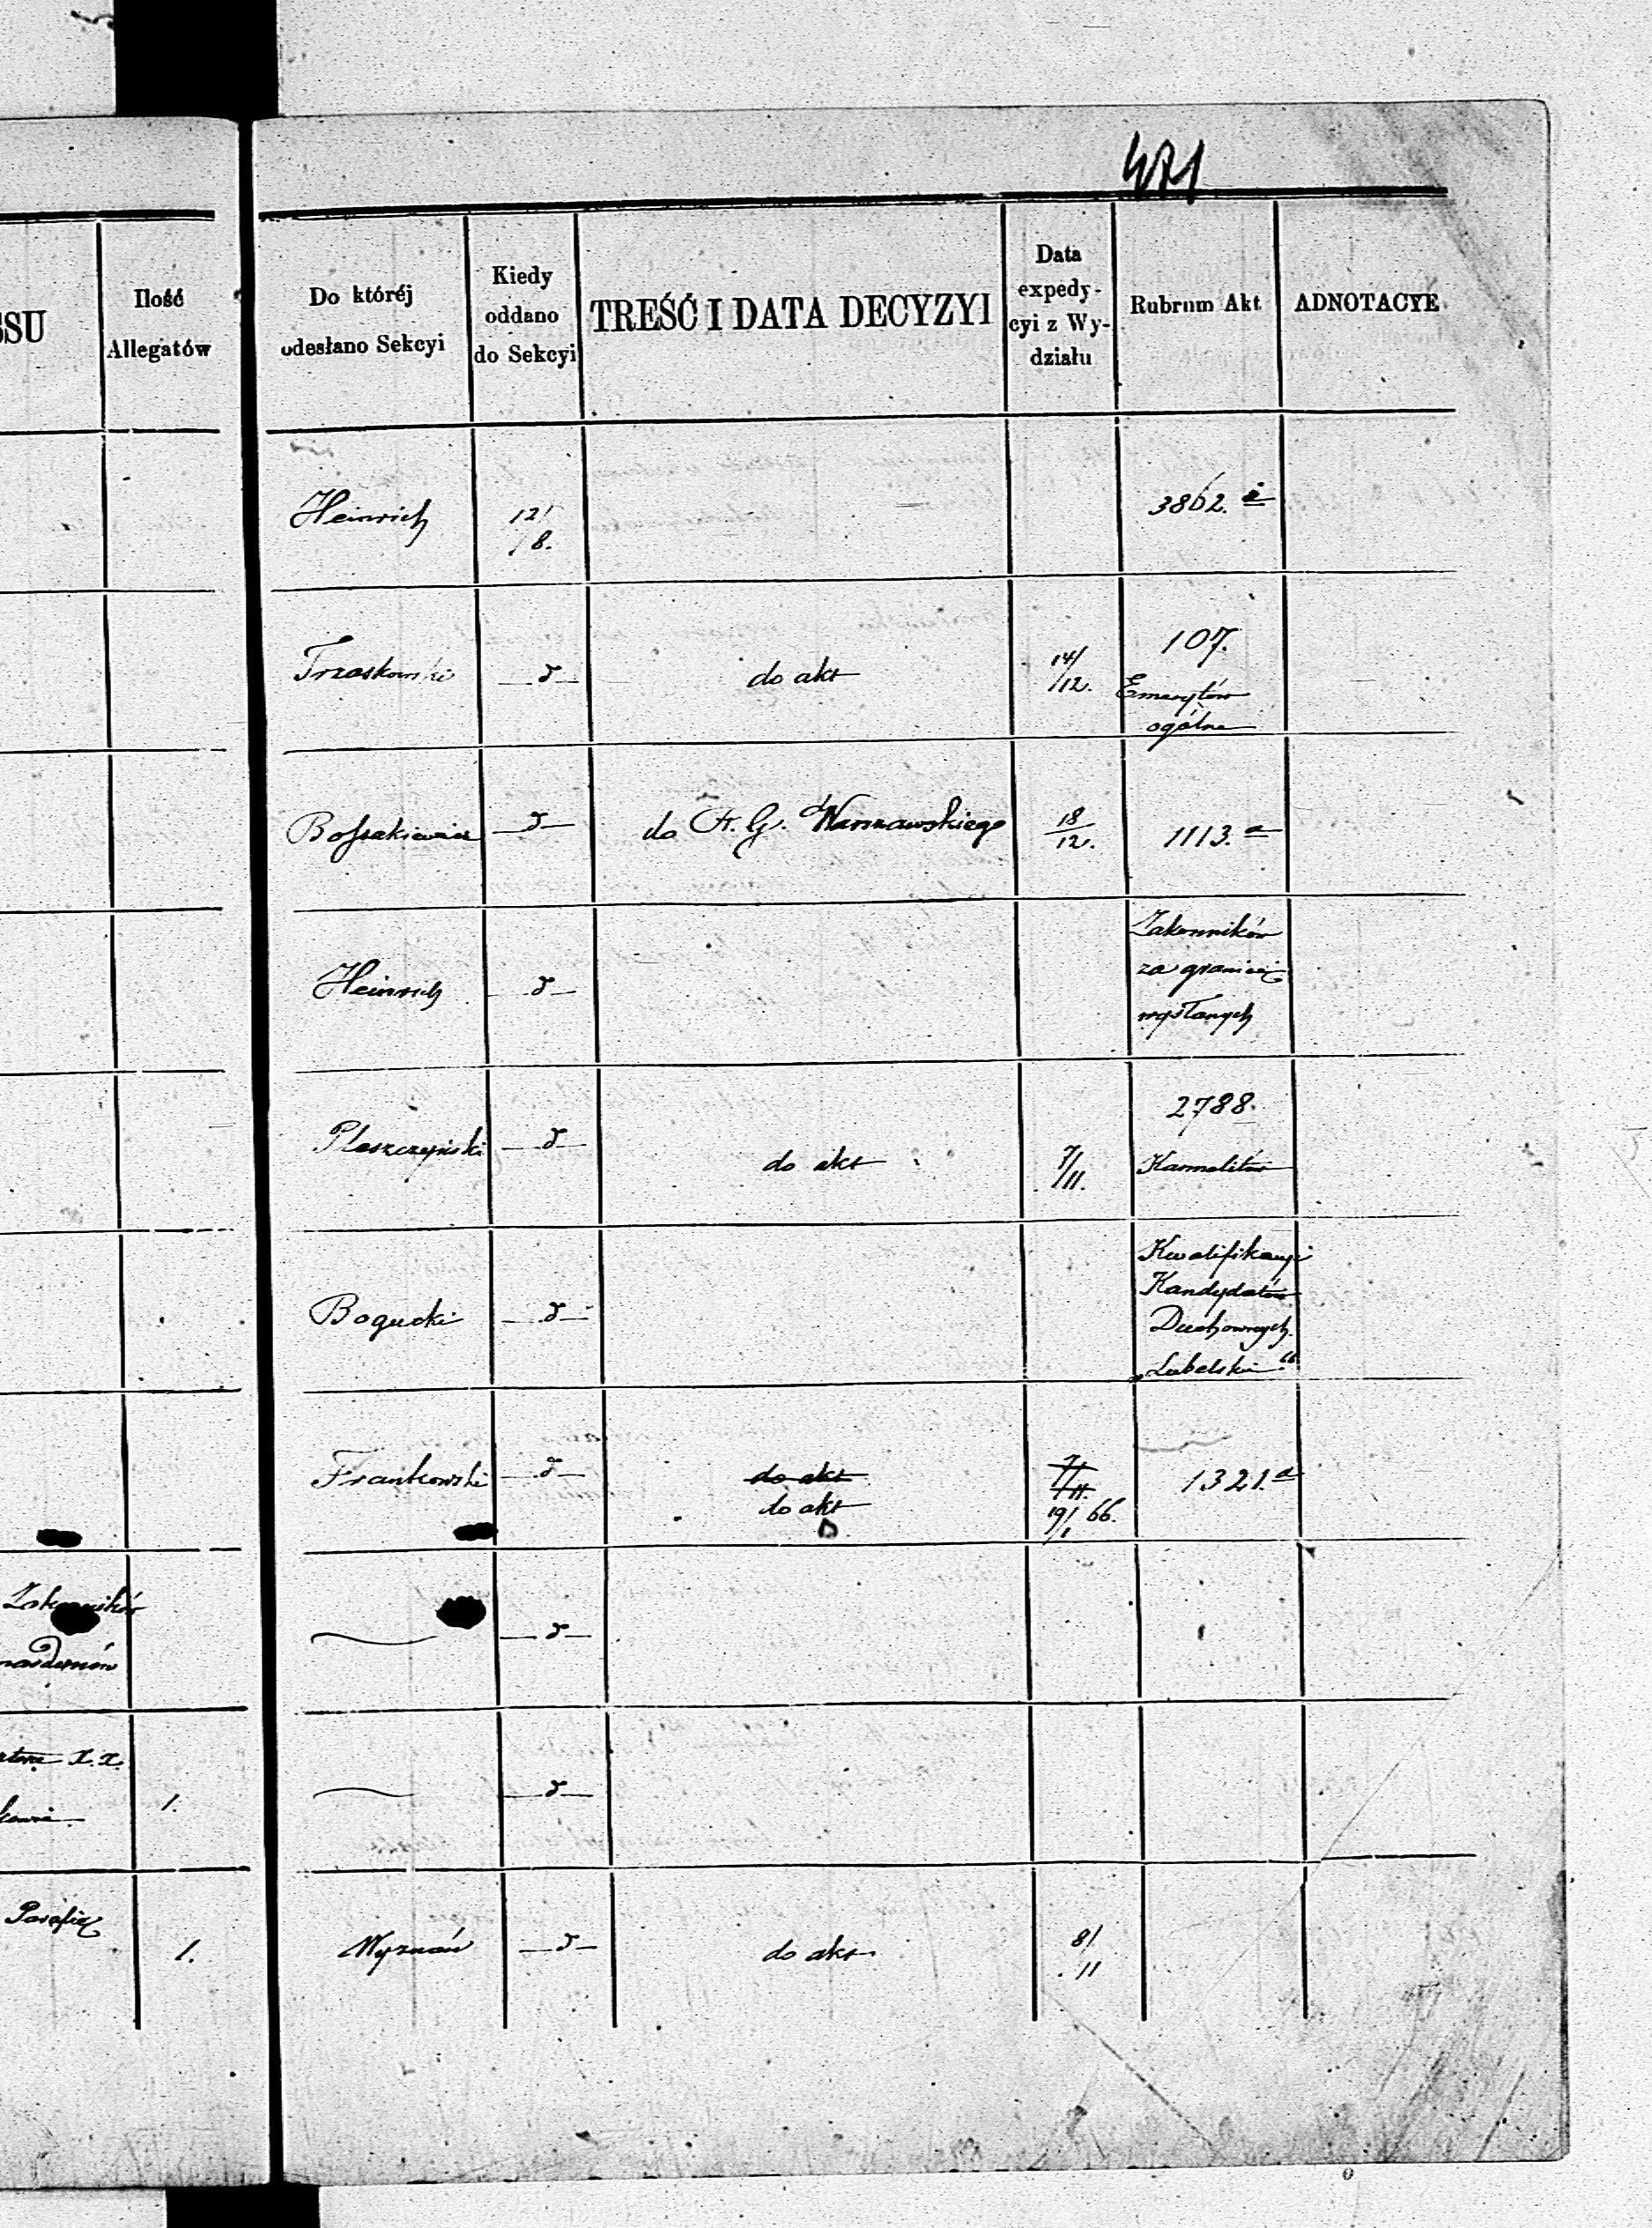 471
SSU
Ilość
Allegatów
Do któréj
odesłano Sekcyi
Kiedy
oddano
do Sekcyi
TREŚĆ I DATA DECYZYI
Data
expedy-
cyi z Wy-
działu
Rubrum Akt
ADNOTACYE
Heinrich
12/
/8.
3862.
Trzaskowski
—d—
do akt
14/
/12.
107.
Emerytów
ogólne
Bossakiewicz
—d—
do G. Warszawskiego
18
12.
1113. a
Heinrich
—d—
Zakonników
za granicę
wysłanych
Pleszczyński
—d—
do akt
7/
/11.
2788.
Karmelitów
Bogucki
—d—
Kwalifikacyi
Kandydatów
Duchownych
„Lubelskie“
Frankowski
—d—
do akt
do akt
7/
/11.
19/1 66.
1321. a
Zakonników
—d—
X. X.
1.
—d—
Parafię
1.
Wyznań
—d—
do akt
8/
/11